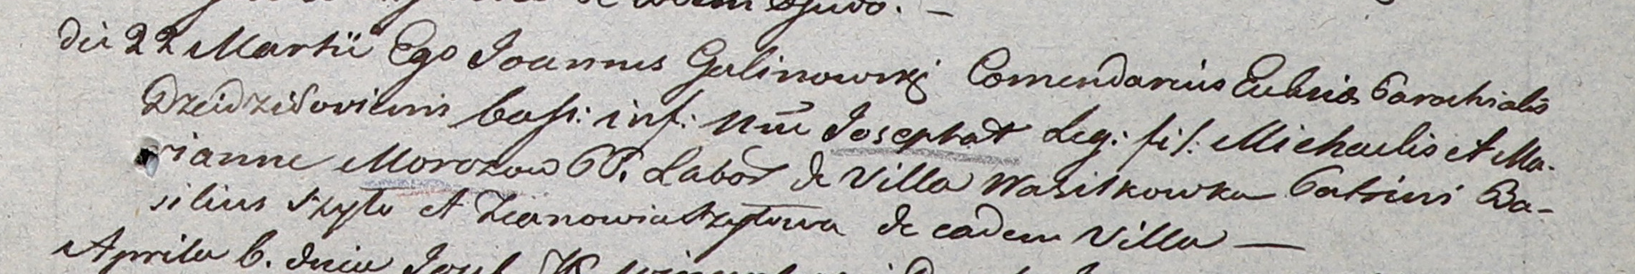 de eodem
die 22 Martii Ego Joannes Galinowski Comendarius Ecclesiae Parochialis
Dzeidziłoviensis bapt: inf: nne Josephat Leg: fil: Michaelis et Ma-
rianne Morozow PP. Labor de Villa Wasilkowka Patrini Ba-
silius Szyło et Zianowia Szyłowa de eadem Villa —
Aprila 6. dnia